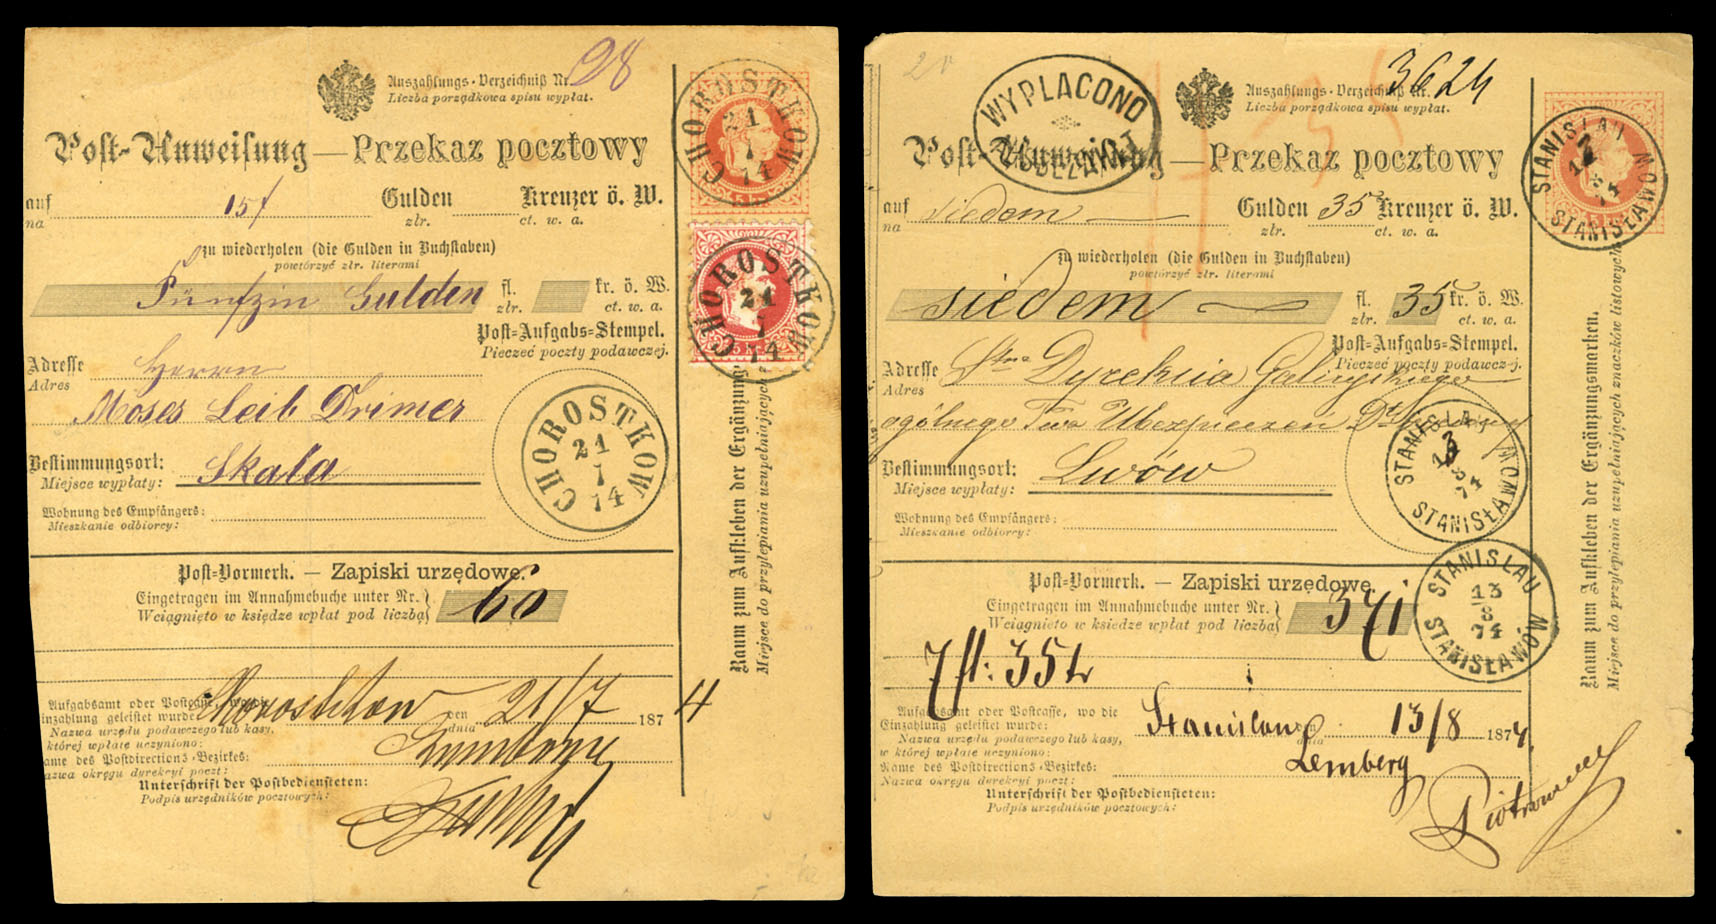 Auszahlungs-Verzeichniß Nr. 98
Liczba porządkowa spisu wypłat.
Post-Anweisung — Przekaz pocztowy
auf 15f Gulden Kreuzer ö. W.
na złr. ct. w. a.
zu wiederholen (die Gulden in Buchstaben)
powtórzyć złr. literami
Fünfzin Gulden fl. kr. ö. W.
złr. ct. w. a.
Post-Aufgabs-Stempel.
Pieczeć poczty podawczej.
Adresse Herrn
Adres
Moses Leib Drimer
Bestimmungsort: Skala
Miejsce wypłaty:
Wohnung des Empfängers:
Mieszkanie odbiorcy:
CHOROSTKOW
21
7
74
CHOROSTKOW
21
7
74
CHOROSTKOW
21
7
74
Post-Vormerk. — Zapiski urzędowe.
Eingetragen im Annahmebuche unter Nr.
Wciągnięto w księdze wpłat pod liczbą
60
Raum zum Aufkleben der Ergänzung
Miejsce do przylepiania uzupełniających
Aufgabsamt oder Postcasse, wo die
inzahlung geleistet wurde:
Chorostkow den 21/7 1874
dnia
Nazwa urzędu podawczego lub kasy,
której wpłatę uczyniono:
ame des Postdirections-Bezirkes: Lemberg
azwa okręgu dyrekcyi poczt:
Unterschrift der Postbediensteten:
Podpis urzędników pocztowych:
Auszahlungs-Verzeichniß Nr. 3624
Liczba porządkowa spisu wypłat.
WYPLACONO
Post-Anweisung — Przekaz pocztowy
auf siedem Gulden 35 Kreuzer ö. W.
na złr. ct. w. a.
zu wiederholen (die Gulden in Buchstaben)
powtórzyć złr. literami
siedem fl. 35 kr. ö. W.
złr. ct. w. a.
Post-Aufgabs-Stempel.
Pieczeć poczty podawczej.
Adresse Dyrekcia Galicyjskiego
Adres
ogólnego Twa Ubezpieczen
Bestimmungsort: Lwów
Miejsce wypłaty:
Wohnung des Empfängers:
Mieszkanie odbiorcy:
STANISLAU
13
8
74
STANISŁAWOW
STANISLAU
13
8
74
STANISŁAWOW
STANISLAU
13
8
74
STANISŁAWÓW
Post-Vormerk. — Zapiski urzędowe.
Eingetragen im Annahmebuche unter Nr.
Wciągnięto w ksiedze wpłat pod liczbą
371
7 fl: 35 kr
Raum zum Aufkleben der Ergänzungsmarken.
Miejsce do przylepiania uzupełniających znaczków listowych
Aufgabsamt oder Postcasse, wo die
Einzahlung geleistet wurde:
Stanislau dnia 13/8 1874.
Nazwa urzędu podawczego lub kasy,
w której wpłatę uczyniono:
Name des Postdirections-Bezirkes: Lemberg
Nazwa okręgu dyrekcyi poczt:
Unterschrift der Postbediensteten:
Podpis urzędników pocztowych: